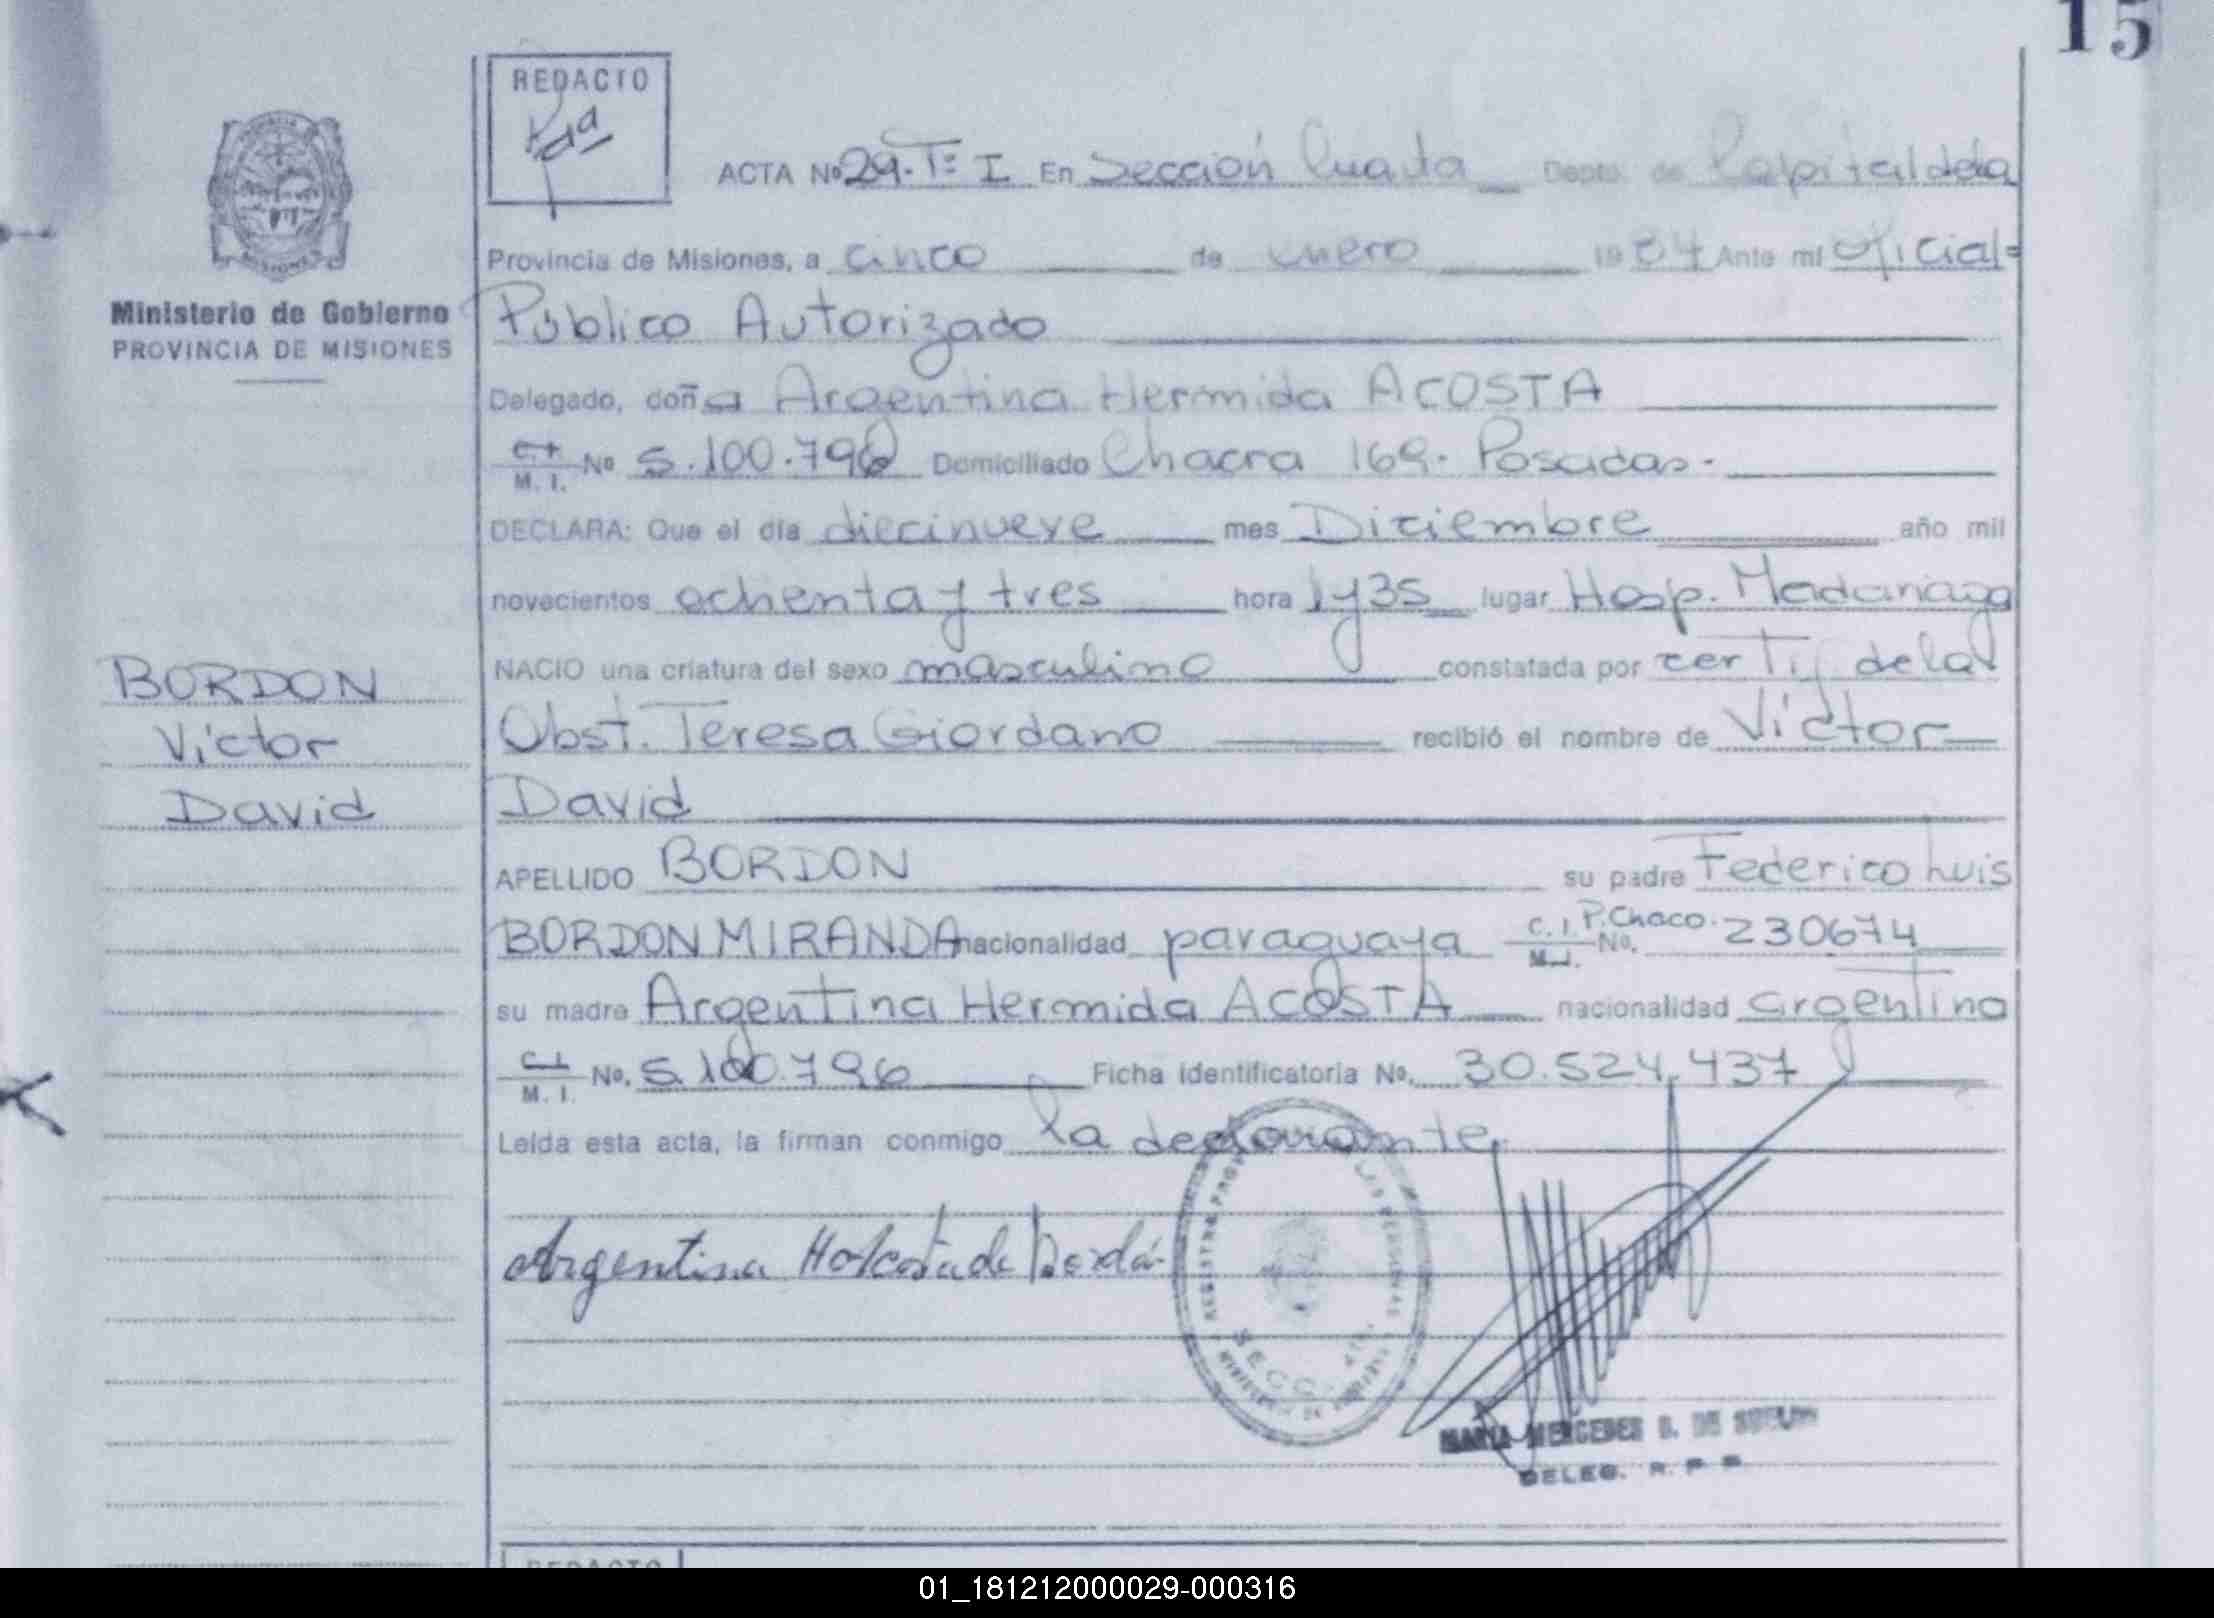 15
REDACTO
ACTA Nº 29. Tº I En Sección Cuarta Depto. de Capital de la
Provincia de Misiones, a cinco de enero 1984 Ante mi Oficial
Ministerio de Gobierno
PROVINCIA DE MISIONES
Público Autorizado
Delegado, doña Argentina Hermida ACOSTA
C.I. M. I. Nº 5.100.796 Domiciliado Chacra 169. Posadas.
DECLARA: Que el día diecinueve mes Diciembre año mil
novecientos ochenta y tres hora 1y35 lugar Hosp. Madariaga
NACIO una criatura del sexo masculino constatada por certif de la
Obst. Teresa Giordano recibió el nombre de Víctor
David
BORDON
Víctor
David
APELLIDO BORDON su padre Federico Luis
BORDON MIRANDA nacionalidad paraguaya C.I. M.I. P.Chaco. No. 230674
su madre Argentina Hermida ACOSTA nacionalidad argentina
C.I. M. I. No. 5.100.796 Ficha identificatoria No. 30.524.437
Leída esta acta, la firman conmigo la declarante
Argentina H Acosta de Bordón
SECC.
MARIA MERCEDES B. DE
DELEG. R. P. P.
REDACTO
01_181212000029-000316